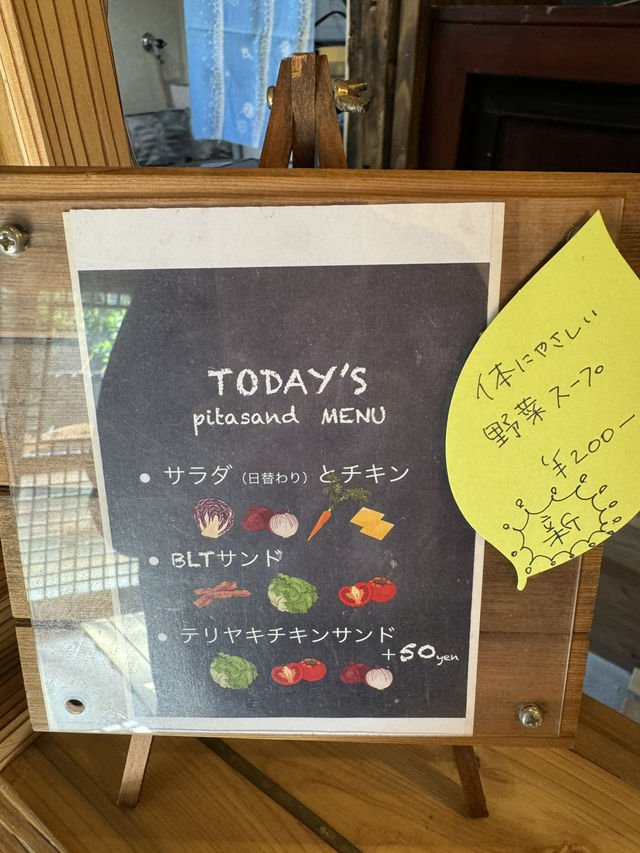 TODAY'S
pitasand MENU
● サラダ（日替わり）とチキン
● BLTサンド
● テリヤキチキンサンド
+50yen
体にやさしい
野菜スープ
¥200ー
新